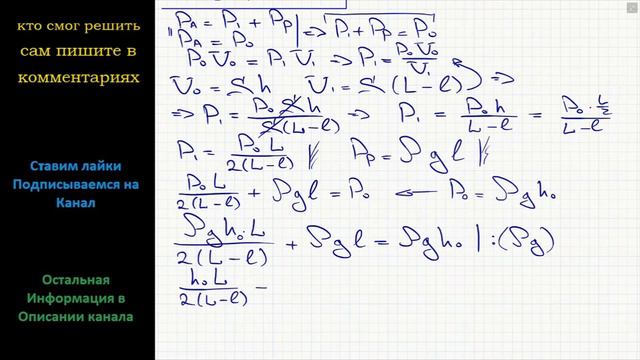 кто смог решить
сам пишите в
комментариях
Ставим лайки
Подписываемся на
Канал
Остальная
Информация в
Описании канала
P_A = P_1 + P_p | => P_1 + P_p = P_0
" P_A = P_0
P_0 V_0 = P_1 V_1 => P_1 = P_0 V_0 / V_1
V_0 = S h V_1 = S (L - l) =>
=> P_1 = P_0 S h / S (L - l) => P_1 = P_0 h / L - l = P_0 · L/2 / L - l
P_1 = P_0 L / 2(L - l) || P_p = ρ g l ||
P_0 L / 2(L - l) + ρ g l = P_0 <= P_0 = ρ g h_0
ρ g h_0 · L / 2(L - l) + ρ g l = ρ g h_0 | : (ρ g)
h_0 L / 2(L - l) -